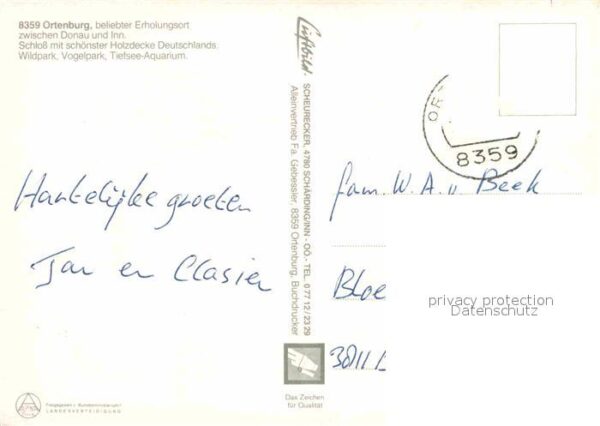 8359 Ortenburg, beliebter Erholungsort
zwischen Donau und Inn.
Schloß mit schönster Holzdecke Deutschlands.
Wildpark, Vogelpark, Tiefsee-Aquarium.
Hartelijke groeten
Jan en
Luftbild:
SCHEURECKER, 4780 SCHÄRDING/INN - OÖ., TEL. 0 77 12 / 23 29
Alleinvertrieb Fa. Gebessler, 8359 Ortenburg, Buchdrucker
8359
fam. W. A. v Beek
Bloe
privacy protection
Datenschutz
Das Zeichen
für Qualität
LANDESVERTEIDIGUNG